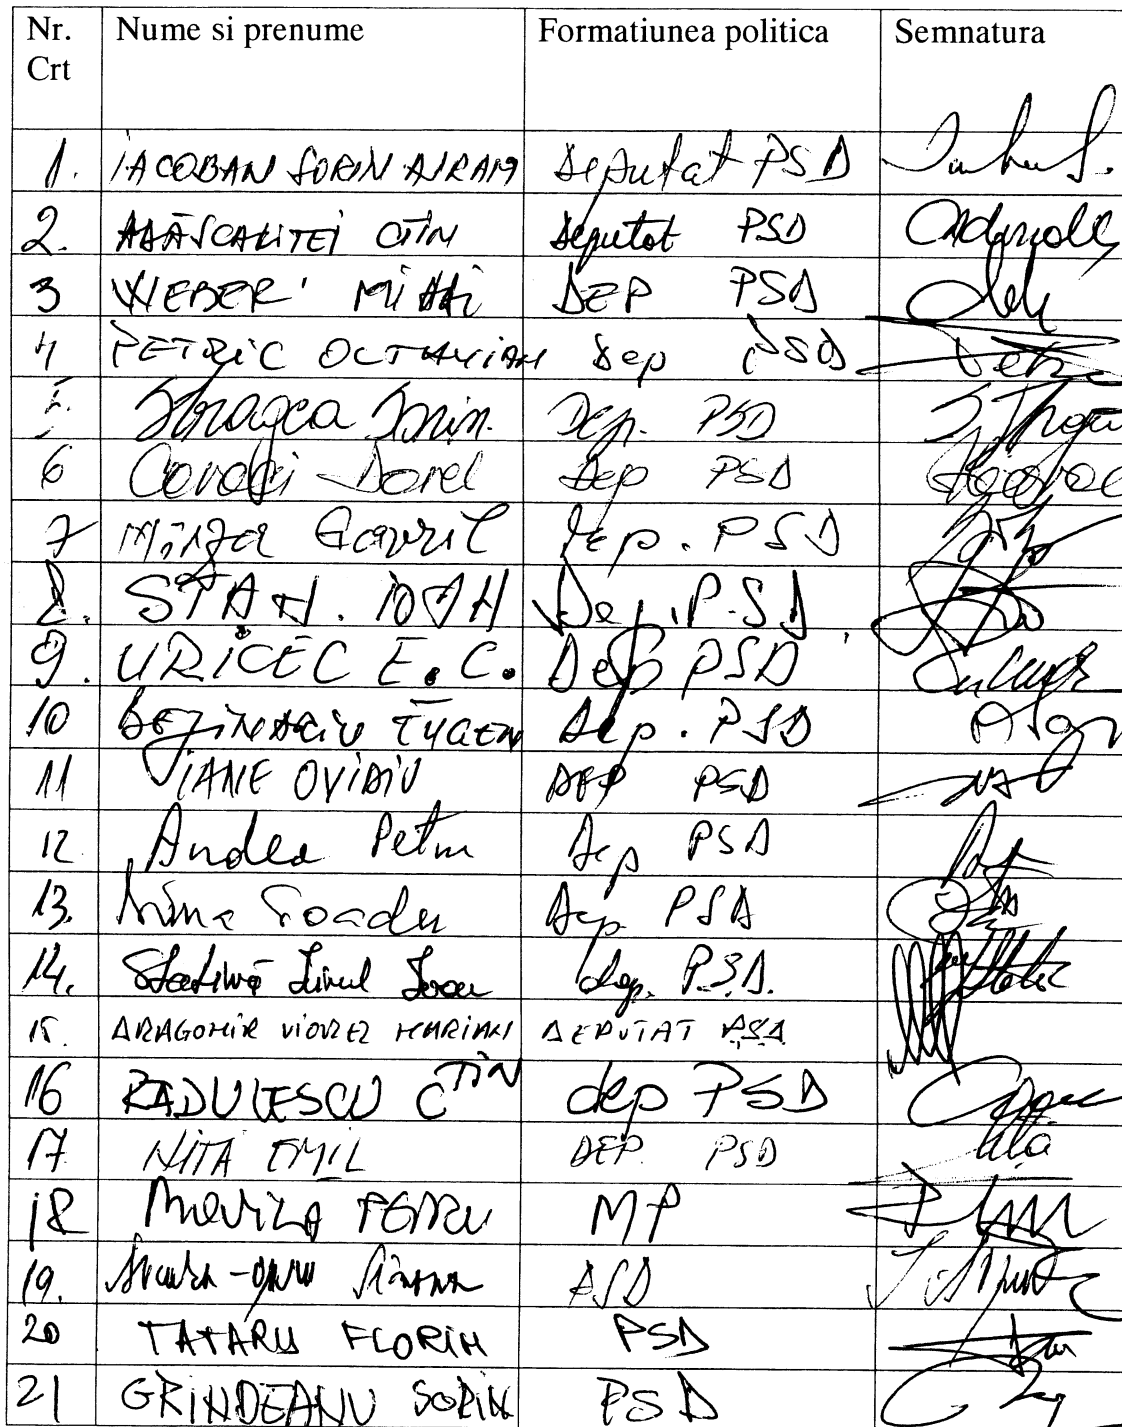 Nr. Crt Nume si prenume Formatiunea politica Semnatura
1. IACOBAN SORIN AVRAM Deputat PSD
2. ADĂSCALITEI CTIN Deputat PSD
3 WEBER MIHAI DEP PSD
4 PETRIC OCTAVIAN Dep PSD
5. Stragea Sorin. Dep. PSD
6 Covaci Dorel Dep PSD
7 Mîrza Gavril Dep. PSD
8. STAN. IOAN Dep. P.SD
9. URICEC E.C. Dep PSD
10 BEJINARIU EUGEN Dep. PSD
11 IANE OVIDIU DEP PSD
12 Andea Petru Dep PSD
13. Toader Dep PSD
14. Ioan dep. P.S.D.
15. DRAGOMIR VIOREL MARIAN DEPUTAT PSD
16 RADULESCU CTIN dep PSD
17 NITA EMIL DEP. PSD
18 Movila PETRU MP
19. PSD
20 TATARU FLORIN PSD
21 GRINDEANU SORIN PSD